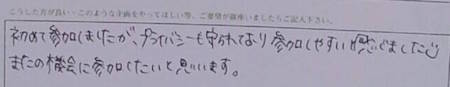 こうした方が良い・このような企画をやってほしい等、ご要望が御座いましたらご記入下さい。
初めて参加しましたが、プライバシーも守られており参加しやすい感じました
またの機会に参加したいと思います。